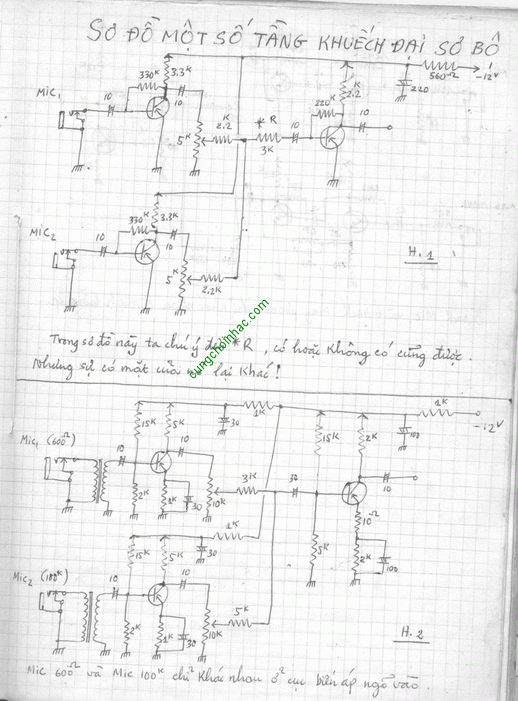 SƠ ĐỒ MỘT SỐ TẦNG KHUẾCH ĐẠI SƠ BỘ
330K 3.3K 560Ω -12V
MIC1 10 10 220
K 2.2 220K 10
5K K 2.2 * R 10
3K
330K 3.3K
MIC2 10 10
5K 2.2K
H.1
cungchoinhac.com
Trong sơ đồ này ta chú ý đến *R, có hoặc không có cũng được.
Nhưng sự có mặt của lại khác!
1K 1K
15K 5K 30 15K 2K 100 -12V
Mic1 (600Ω) 10 10 3K 30 10
2K 1K 30 10K 10Ω
1K 5K 2K 100
15K 5K 30
Mic2 (100K) 10 10 5K
2K 1K 30 10K
H.2
Mic 600Ω và Mic 100K chỉ khác nhau ở cục biến áp ngõ vào.